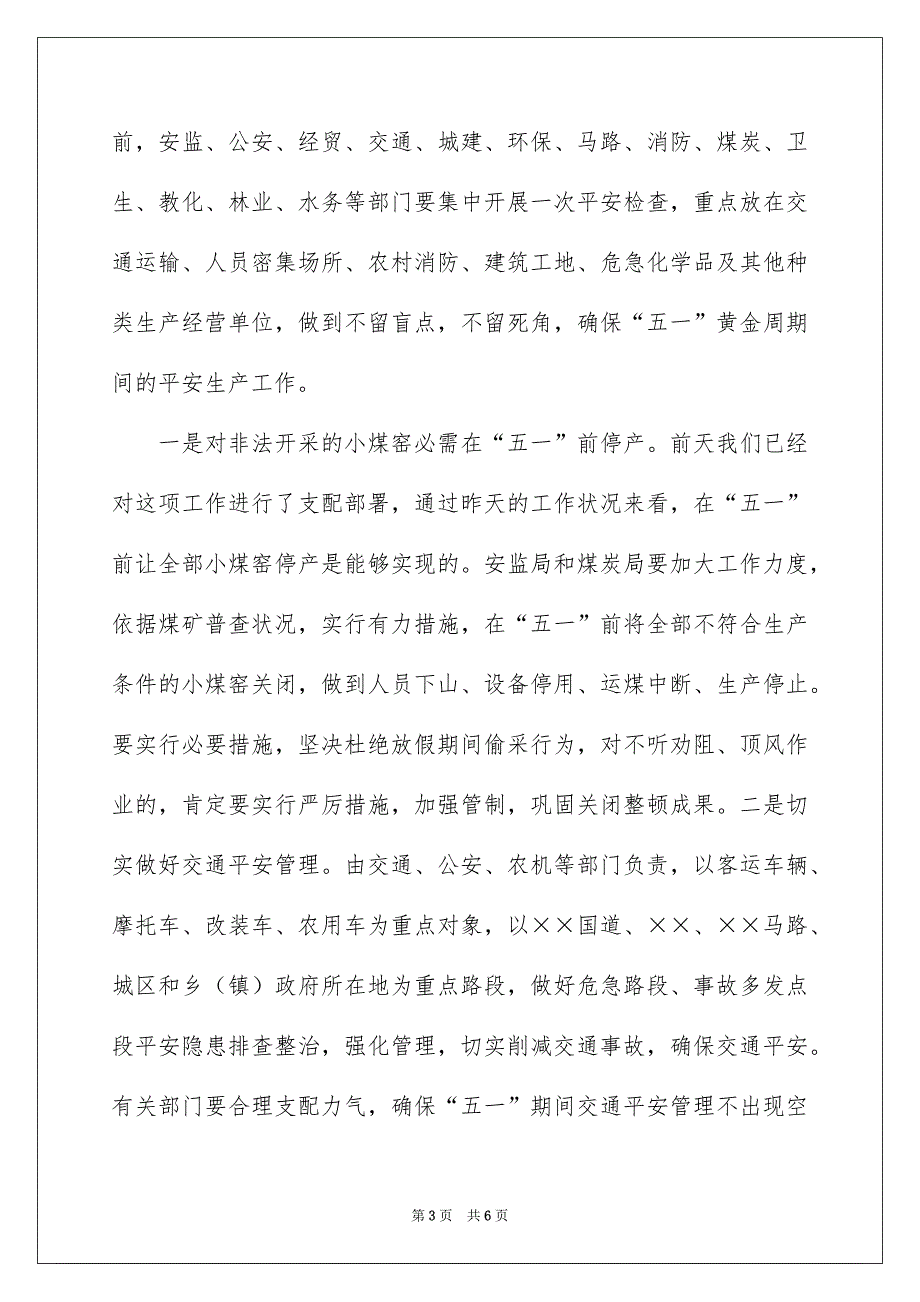 前，安监、公安、经贸、交通、城建、环保、马路、消防、煤炭、卫
生、教化、林业、水务等部门要集中开展一次平安检查，重点放在交
通运输、人员密集场所、农村消防、建筑工地、危急化学品及其他种
类生产经营单位，做到不留盲点，不留死角，确保“五一”黄金周期
间的平安生产工作。
一是对非法开采的小煤窑必需在“五一”前停产。前天我们已经
对这项工作进行了支配部署，通过昨天的工作状况来看，在“五一”
前让全部小煤窑停产是能够实现的。安监局和煤炭局要加大工作力度，
依据煤矿普查状况，实行有力措施，在“五一”前将全部不符合生产
条件的小煤窑关闭，做到人员下山、设备停用、运煤中断、生产停止。
要实行必要措施，坚决杜绝放假期间偷采行为，对不听劝阻、顶风作
业的，肯定要实行严厉措施，加强管制，巩固关闭整顿成果。二是切
实做好交通平安管理。由交通、公安、农机等部门负责，以客运车辆、
摩托车、改装车、农用车为重点对象，以××国道、××、××马路、
城区和乡（镇）政府所在地为重点路段，做好危急路段、事故多发点
段平安隐患排查整治，强化管理，切实削减交通事故，确保交通平安。
有关部门要合理支配力气，确保“五一”期间交通平安管理不出现空
第 3 页 共 6 页